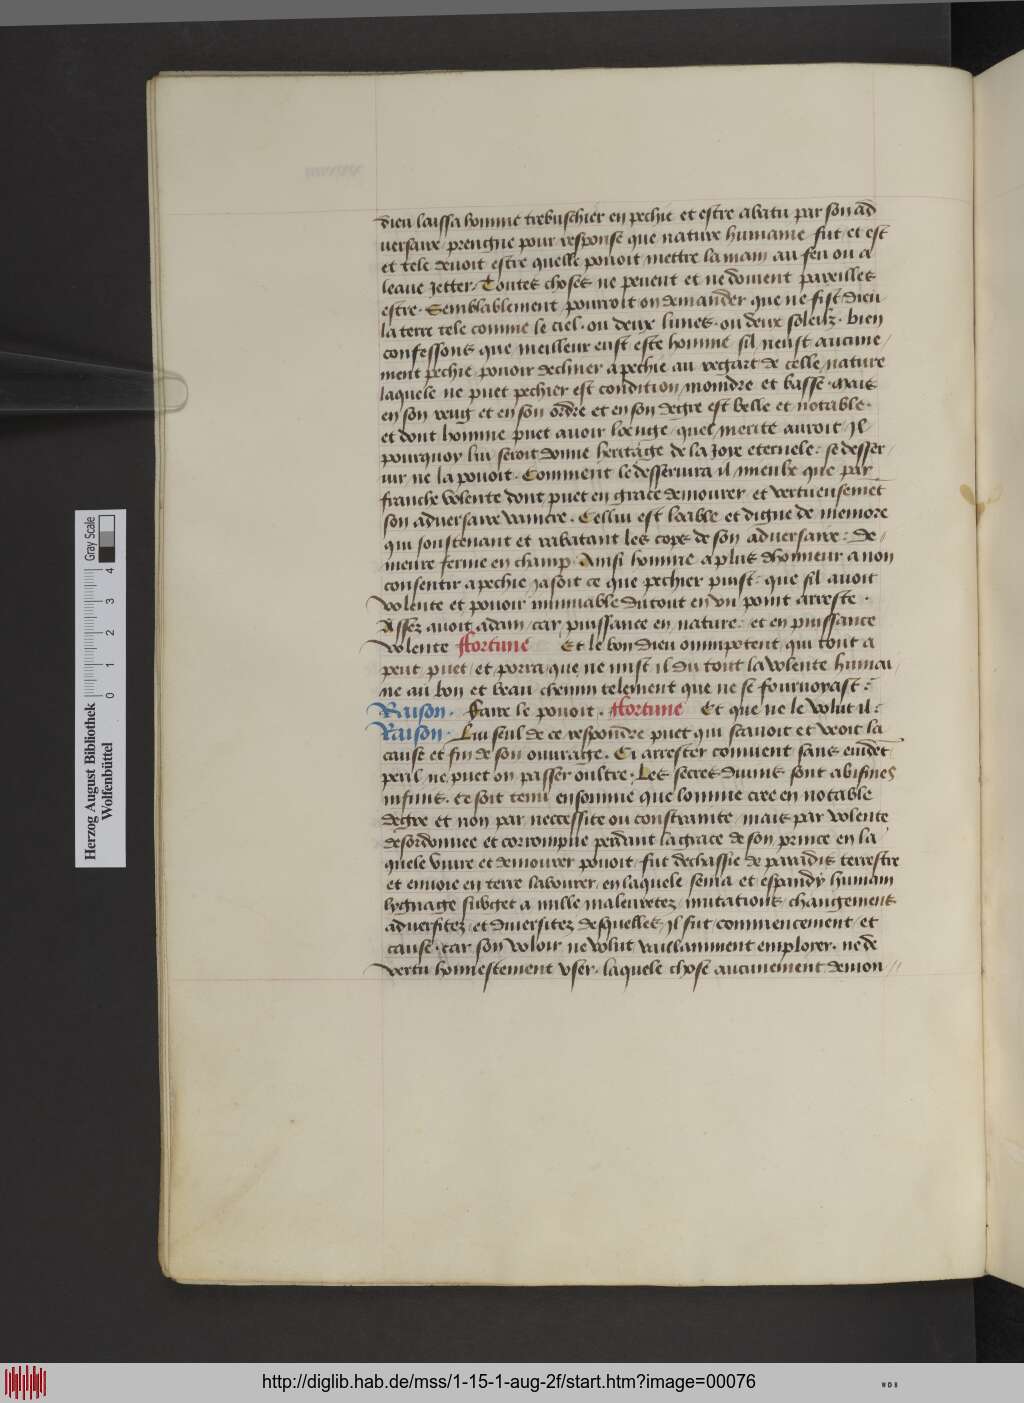 dieu laissa homme trebuschier en pechie et estre abatu par son ad
versaire prengne pour response que nature humaine fut et est
et tele devoit estre quelle povoit mettre la main au feu ou a
leaue jetter. Toutes choses ne pevent et ne doivent pareilles
estre. Semblablement pourroit on demander que ne fist dieu
la terre tele comme le ciel. ou deux lunes. ou deux soleilz. bien
confessons que meilleur eust este homme sil neust aucune/
ment pechie povoir decliner a pechie au regart de celle nature
laquele ne puet pechier est condition moindre et basse. mais
en son reng et en son ordre et en son degre est belle et notable.
et dont homme puet avoir loenge quel merite auroit il
pourquoy lui seroit donne heritage de la joye eternele: se desser/
vir ne la povoit. Comment le desservira il mieulx que par
franche volente dont puet en grace demourer et vertueusemēt
son adversaire vaincre. Cellui est loable et digne de memore
qui soustenant et rabatant les cops de son adversaire: de/
meure ferme en champ. Ainsi homme a plus dhonneur a non
consentir a pechie jasoit ce que pechier puist: que sil avoit
volente et povoir inmuable du tout en un point arreste.
Assez avoit adam. car puissance en nature: et en puissance
volente Ffortune Et le bon dieu omnipotent qui tout a
peut puet et porra que ne mist il du tout la volente humai/
ne au bon et beau chemin telement que ne se fourvoyast:
Raison. Faire le povoit. Ffortune Et que ne le volut il:
Raison. Lui seul de ce respondre puet qui scavoit et veoit la
cause et fin de son ouvrage. Ci arrester convient sans evidēt
peril ne puet on passer oultre. Les secres divins sont abismes
infinis. Ce soit tenu en somme que lomme cree en notable
degre et non par neccessite ou constrainte mais par volente
desordonnee et corrompue perdant la grace de son prince en la
quele vivre et demourer povoit fut dechassie de paradis terrestre
et envoie en terre labourer. en laquele sema et espandy humain
lygnage subget a mille maleuretez mutations changemens
adversitez et diversitez desquelles il fut commencement et
cause. car son voloir ne volut vaillamment employer. ne de
vertu honnestement user. laquele chose aucunement demon//
Herzog August Bibliothek
Wolfenbüttel
0 1 2 3 4
Gray Scale
http://diglib.hab.de/mss/1-15-1-aug-2f/start.htm?image=00076